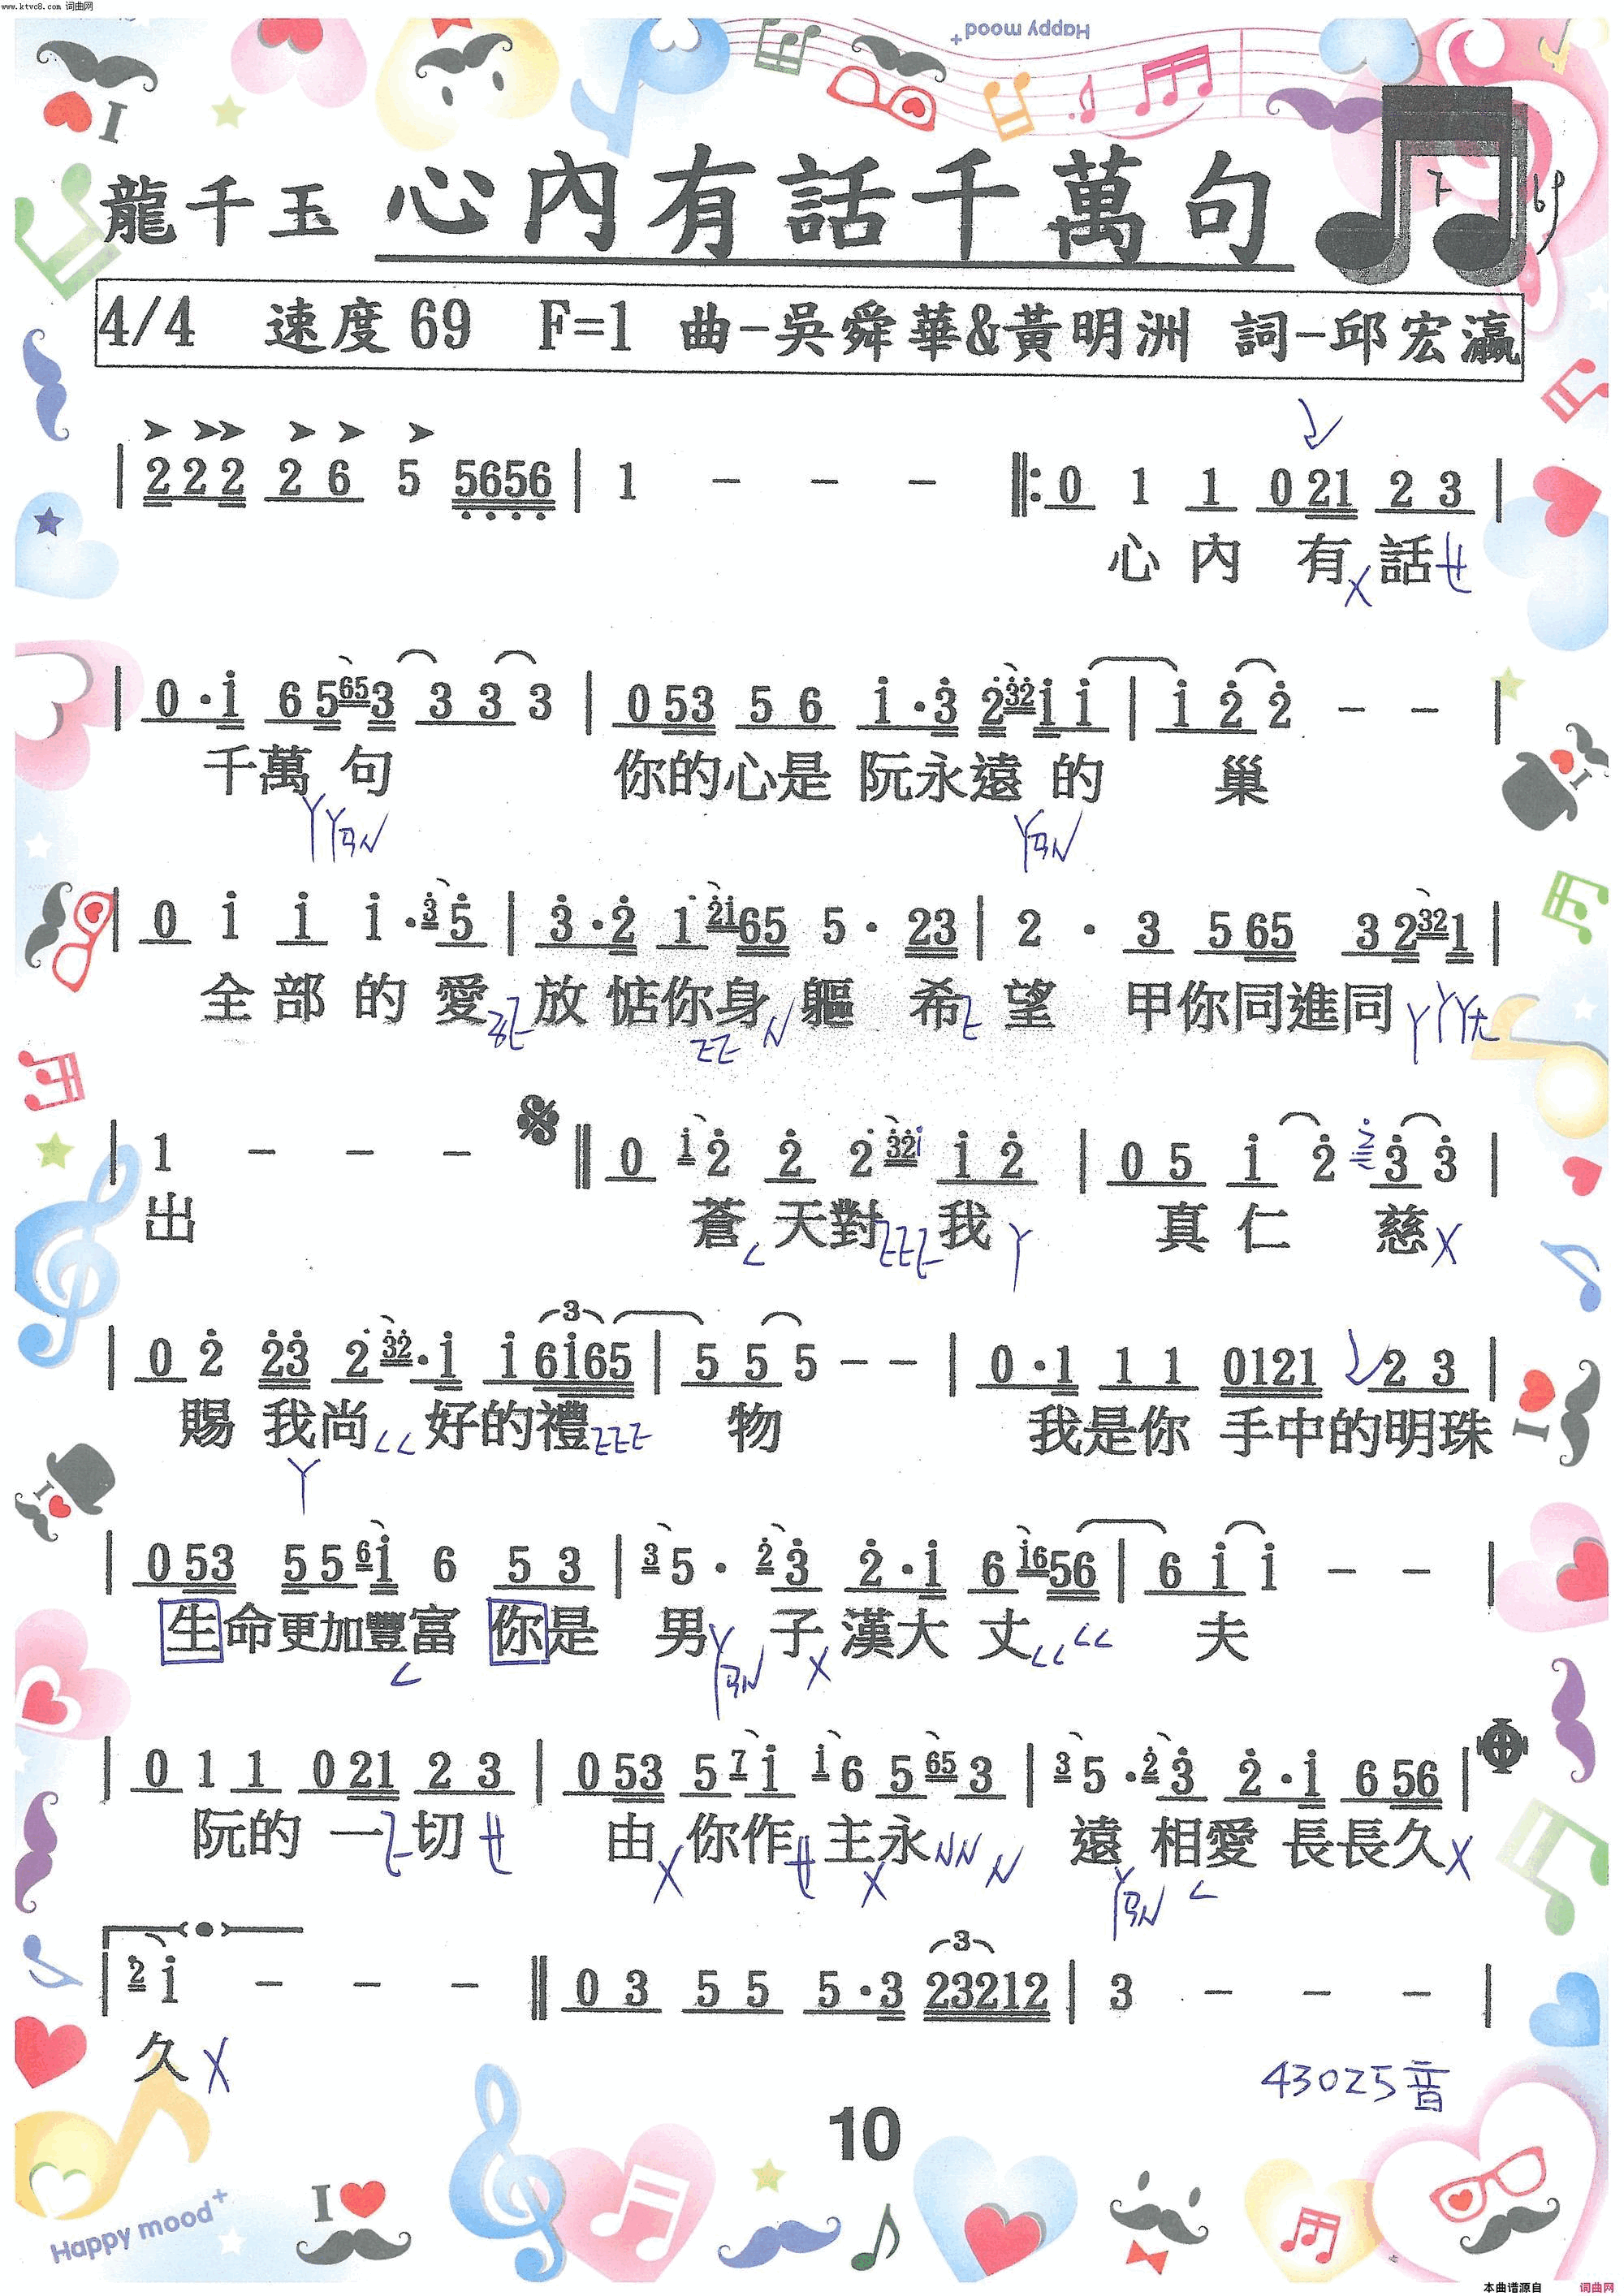 www.ktvc8.com 词曲网
Happy mood+
龍千玉 心內有話千萬句
4/4 速度 69 F=1 曲-吳舜華&黃明洲 詞-邱宏瀛
| 2 2 2 2 6 5 5656 | 1 - - - ‖: 0 1 1 0 21 2 3 |
心 內 有 話
| 0 · 1 6 5 65 3 3 3 3 | 0 53 5 6 1 · 3 2 32 1 1 | 1 2 2 - - |
千萬 句 你的心是 阮永遠 的 巢
| 0 1 1 1 · 3 5 | 3 · 2 1 21 65 5 · 23 | 2 · 3 5 65 3 2 32 1 |
全 部 的 愛 放 惦你身 軀 希 望 甲你同進同
| 1 - - - ‖ 0 1 2 2 2 32 1 2 | 0 5 1 2 3 3 |
出 蒼 天對 我 真 仁 慈
| 0 2 23 2 32 · 1 1 6165 | 5 5 5 - - | 0 · 1 1 1 0121 2 3 |
賜 我尚 好的禮 物 我是你 手中的明珠
| 0 53 5 5 6 1 6 5 3 | 3 5 · 2 3 2 · 1 6 16 56 | 6 1 1 - - |
生命更加豐富 你是 男 子 漢大 丈 夫
| 0 1 1 0 21 2 3 | 0 53 5 7 1 1 6 5 65 3 | 3 5 · 2 3 2 · 1 6 56 |
阮的 一 切 由 你作 主永 遠 相愛 長長久
| 2 1 - - - ‖ 0 3 5 5 5 · 3 23212 | 3 - - - |
久
43025音
10
Happy mood+
I
本曲谱源自 词曲网